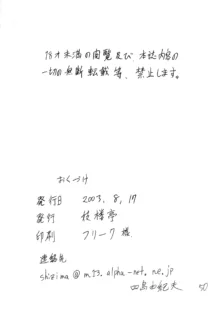 18才未満の閲覧及び、本誌内容の
一切の無断転載等、禁止します。
おくづけ
発行日 2003. 8. 17
発行 桟楼亭
印刷 フリーク 様
連絡先
shizima@m23.alpha-net.ne.jp
四島由紀夫
50